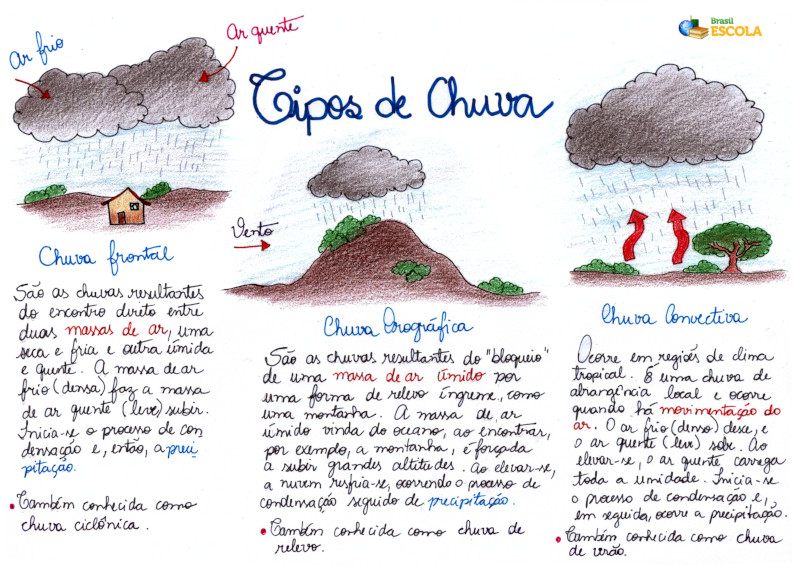 Brasil
ESCOLA
Tipos de Chuva
Ar frio
Ar quente
Chuva frontal
São as chuvas resultantes
do encontro direto entre
duas massas de ar, uma
seca e fria e outra úmida
e quente. A massa de ar
frio (densa) faz a massa
de ar quente (leve) subir.
Inicia-se o processo de con
densação e, então, a preci
pitação.
• Também conhecida como
chuva ciclônica.
Vento
Chuva Orográfica
São as chuvas resultantes do "bloqueio"
de uma massa de ar úmido por
uma forma de relevo íngreme, como
uma montanha. A massa de ar
úmido vinda do oceano, ao encontrar,
por exemplo, a montanha, é forçada
a subir grandes altitudes. Ao elevar-se,
a nuvem resfria-se, ocorrendo o processo de
condensação seguido de precipitação.
• Também conhecida como chuva de
relevo.
Chuva Convectiva
Ocorre em regiões de clima
tropical. É uma chuva de
abrangência local e ocorre
quando há movimentação do
ar. O ar frio (denso) desce, e
o ar quente (leve) sobe. Ao
elevar-se, o ar quente carrega
toda a umidade. Inicia-se
o processo de condensação e,
em seguida, ocorre a precipitação.
• Também conhecida como chuva
de verão.